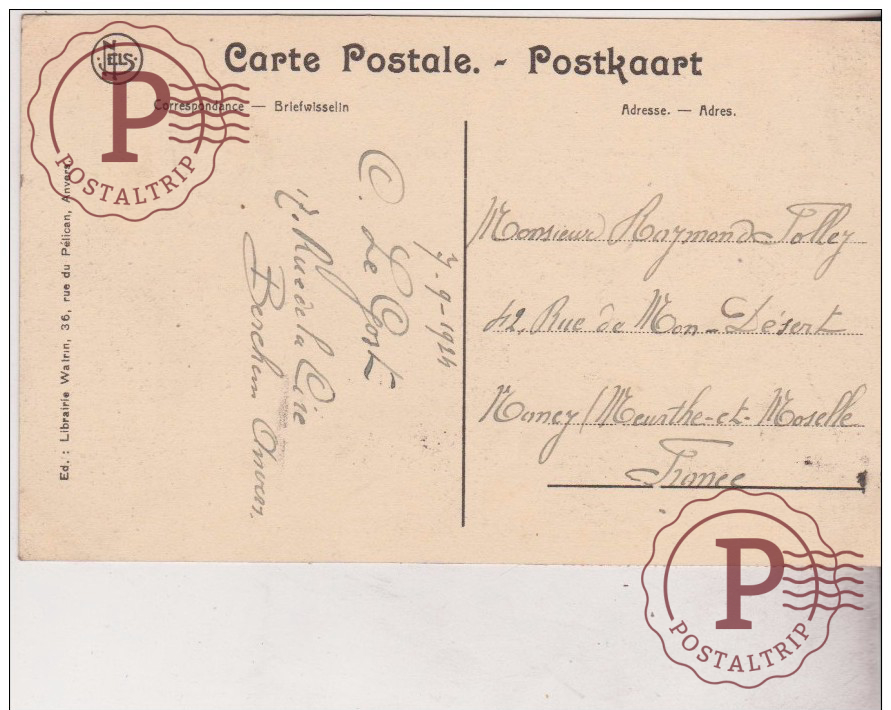 NELS
Carte Postale. - Postkaart
Correspondance — Briefwisselin
Adresse. — Adres.
POSTALTRIP
Ed. : Librairie Walrin, 36, rue du Pélican, Anvers
7-9-1924
C. Le Gost
Rue de la Cire
Berchem Anvers.
Monsieur Raymond Folley
42, Rue de Mon-Désert
Nancy (Meurthe-et-Moselle
France
P
POSTALTRIP